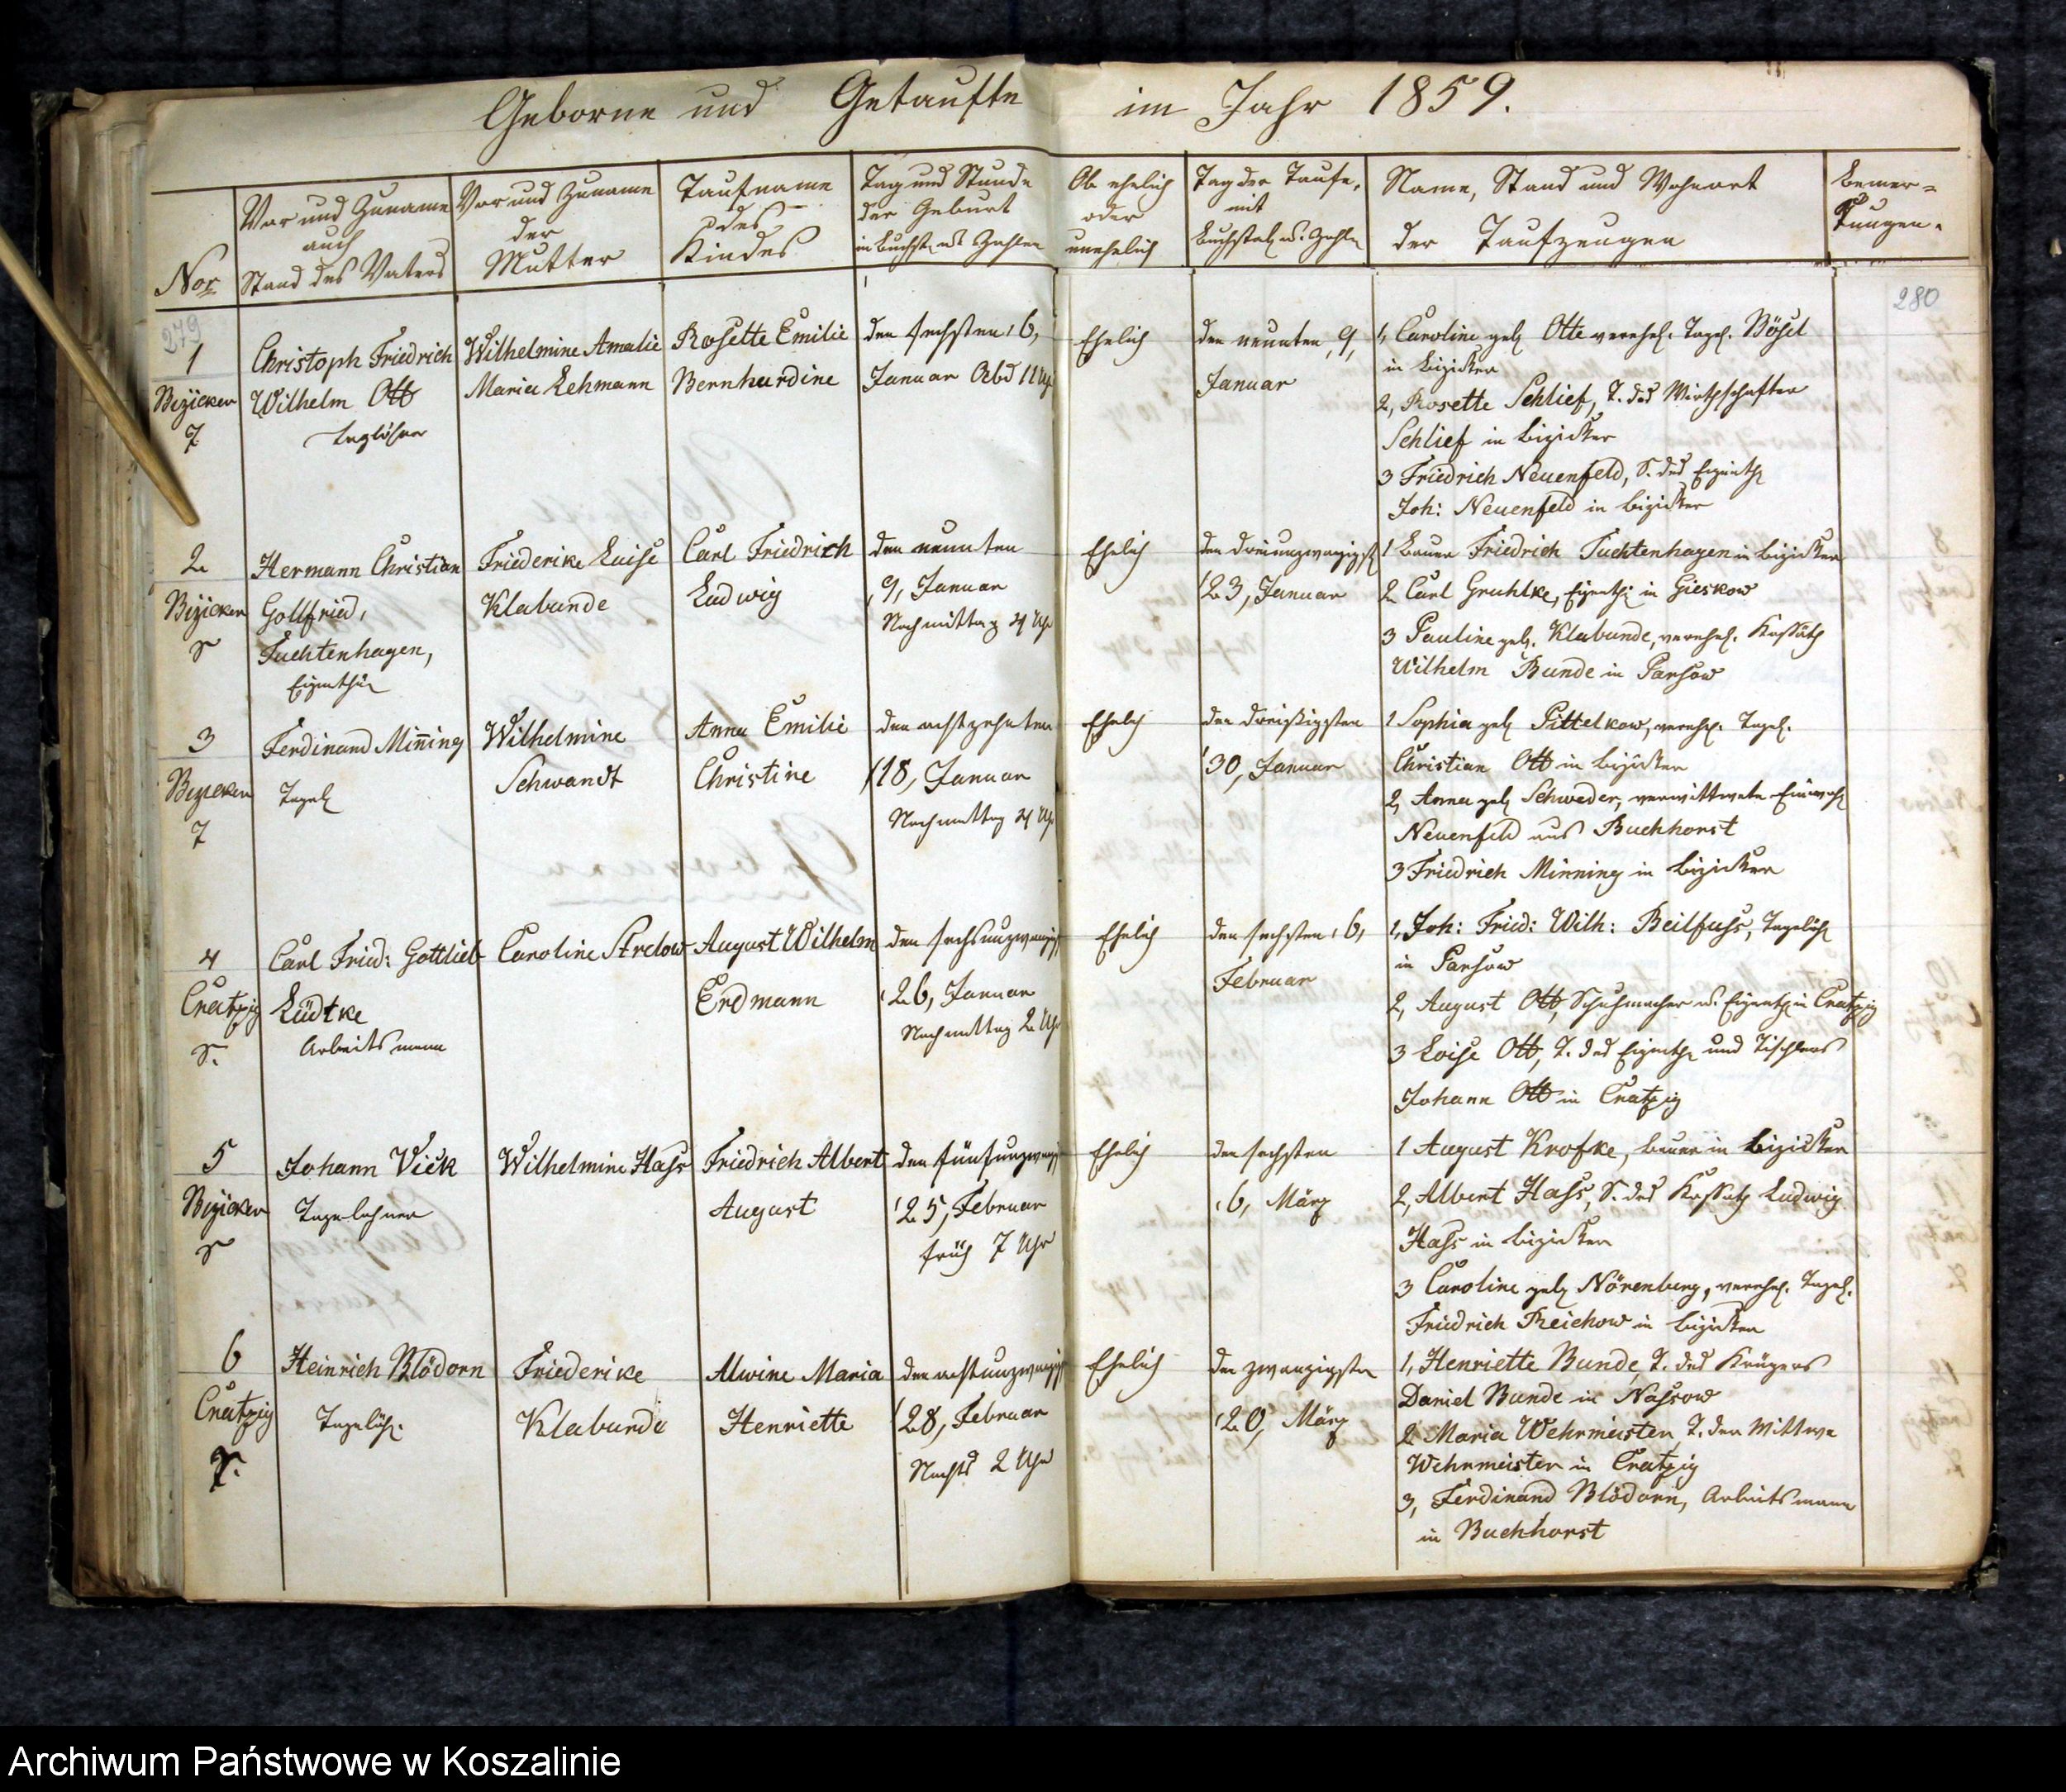 Geborne und Getaufte im Jahr 1859.
Nor
Vor und Zuname
auch
Stand des Vaters
Vor und Zuname
der
Mutter
Taufname
des
Kindes
Tag und Stunde
der Geburt
in Buchst. u. Zahlen
Ob ehelich
oder
unehelich
Tag der Taufe,
mit
Buchstab. u. Zahlen
Name, Stand und Wohnort
der Taufzeugen
Bemer=
kungen.
279
280
1
Bizicker
T.
Christoph Friedrich
Wilhelm Ott
Taglöhner
Wilhelmine Amalie
Maria Lehmann
Rosette Emilie
Bernhardine
den sechsten, 6,
Januar Abd 11 Uhr
Ehelich
den neunten, 9,
Januar
1, Caroline geb. Otte verehel. Tagel. Bösel
in Bizicker
2, Rosette Schlief, T. des Wirthschafter
Schlief in Bizicker
3 Friedrich Neuenfeld, S. des Eigenth.
Joh: Neuenfeld in Bizicker
2
Bizicker
S
Hermann Christian
Gottfried,
Tuchtenhagen,
Eigenthü.
Friederike Luise
Klabunde
Carl Friedrich
Ludwig
den neunten
,9, Januar
Nachmittag 4 Uhr
Ehelich
den dreiunzwanzigst.
,23, Januar
1 Bauer Friedrich Tuchtenhagen in Bizicker
2 Carl Gruhlke, Eigenth: in Gieskow
3 Pauline geb. Klabunde, verehel. Kossäth
Wilhelm Bunde in Parsow
3
Bizicker
T
Ferdinand Miñing
Tagel.
Wilhelmine
Schwandt
Anna Emilie
Christine
den achtzehnten
,18, Januar
Nachmittag 4 Uhr
Ehelich
den dreißigsten
,30, Januar
1 Sophia geb. Pittelkow, verehel. Tagel.
Christian Ott in Bizicker
2, Anna geb. Schweder, verwittwete Einwoh.
Neuenfeld aus Buchhorst
3 Friedrich Minning in Bizicker
4
Cratzig
S.
Carl Fried: Gottlieb
Lüdtke
Arbeitsmann
Caroline Strelow
August Wilhelm
Erdmann
den sechsunzwanzigst
,26, Januar
Nachmittag 2 Uhr
Ehelich
den sechsten, 6,
Februar
1, Joh: Fried: Wilh: Beilfuss, Tagelöh.
in Parsow
2, August Ott, Schuhmacher u. Eigenth. in Cratzig
3 Loise Ott, T. des Eigenth. und Tischlers
Johann Ott in Cratzig
5
Bizicker
S
Johann Vick
Tagelohner
Wilhelmine Hass
Friedrich Albert
August
den fünfunzwanzigst
,25, Februar
früh 7 Uhr
Ehelich
den sechsten
,6, März
1 August Krofke, Bauer in Bizicker
2, Albert Hass, S. des Kossäth Ludwig
Hass in Bizicker
3 Caroline geb. Nörenberg, verehel. Tagel.
Friedrich Reichow in Bizicker
6
Cratzig
T.
Heinrich Blödorn
Tagelöh.
Friederike
Klabunde
Alwine Maria
Henriette
den achtunzwanzigst
,28, Februar
Nachts 2 Uhr
Ehelich
den zwanzigsten
,20, März
1, Henriette Bunde, T. des Krügers
Daniel Bunde in Nassow
2 Maria Wehrmeister T. der Wittwe
Wehrmeister in Cratzig
3, Ferdinand Blödorn, Arbeitsmann
in Buchhorst
Archiwum Państwowe w Koszalinie